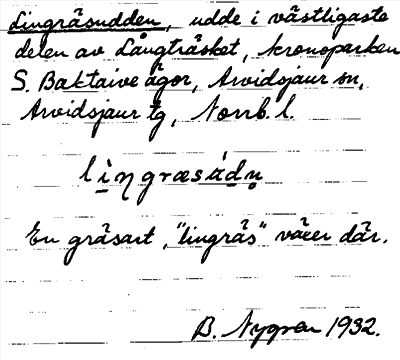 Lingräsudden, udde i västligaste
delen av Långträsket, kronoparken
S. Baktaive ägor, Arvidsjaur sn,
Arvidsjaur tg, Norrb. l.
En gräsart, "lingräs" växer där.
B. Nygren 1932.